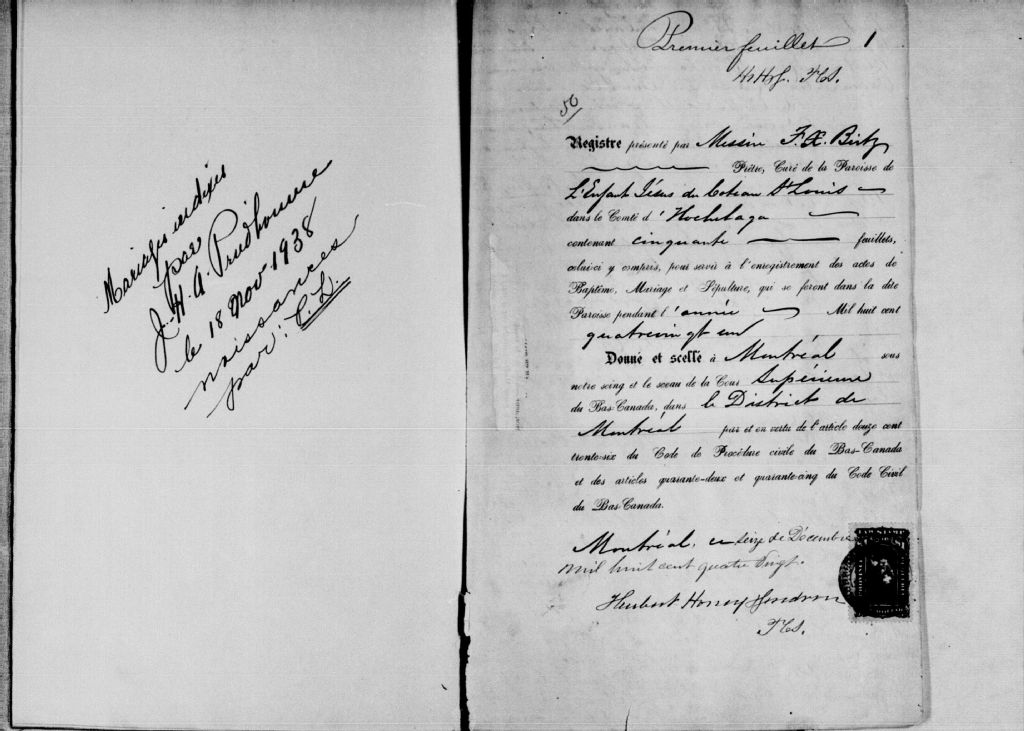 Mariages indexés
par
J. H. A. Prudhomme
le 18 Nov 1938
naissances
par: C. L.
Premier feuillet 1
50
Registre présenté par Messire F. X. Birtz
Prêtre, Curé de la Paroisse de
L'Enfant Jésus du Coteau St Louis
dans le Comté d'Hochelaga
contenant cinquante feuillets,
celui-ci y compris, pour servir à l'enregistrement des actes de
Baptême, Mariage et Sépulture, qui se feront dans la dite
Paroisse pendant l'année Mil huit cent
quatrevingt un
Donné et scellé à Montréal sous
notre seing et le sceau de la Cour Supérieure
du Bas-Canada, dans le District de
Montréal par et en vertu de l'article douze cent
trente-six du Code de Procédure civile du Bas-Canada
et des articles quarante-deux et quarante-cinq du Code Civil
du Bas-Canada.
Montréal, ce seize de Décembre
mil huit cent quatre vingt.